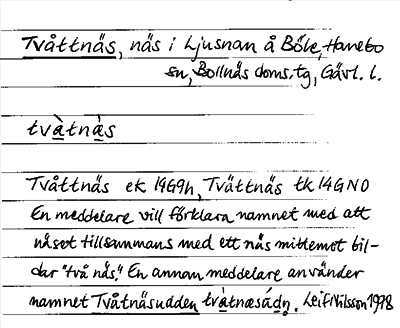 Tvåttnäs, näs i Ljusnan å Böle, Hanebo
sn, Bollnäs doms.tg, Gävl. l.
tvàtnàs
Tvåttnäs ek 14G9h, Tvättnäs tk 14GNO
En meddelare vill förklara namnet med att
näset tillsammans med ett näs mittemot bil-
dar "två näs". En annan meddelare använder
namnet Tvåtnäsudden tvàtnæsádn. Leif Nilsson 1978